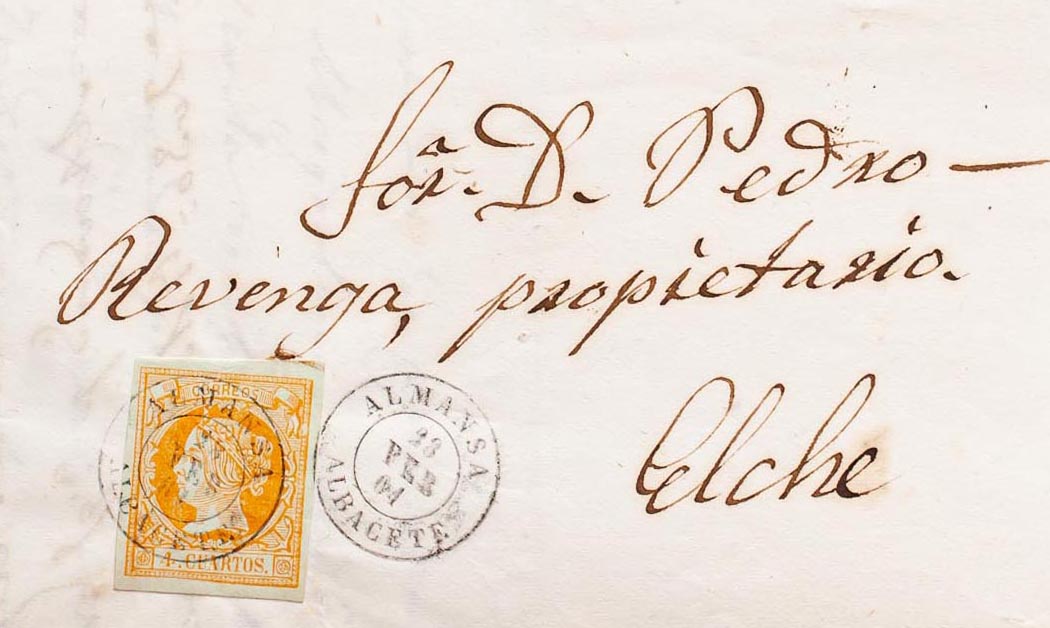 Sõr. D. Pedro —
Revenga, propietario.
Elche
CORREOS
4 CUARTOS.
ALMANSA
ALBACETE
ALMANSA
28
FEB
61
ALBACETE